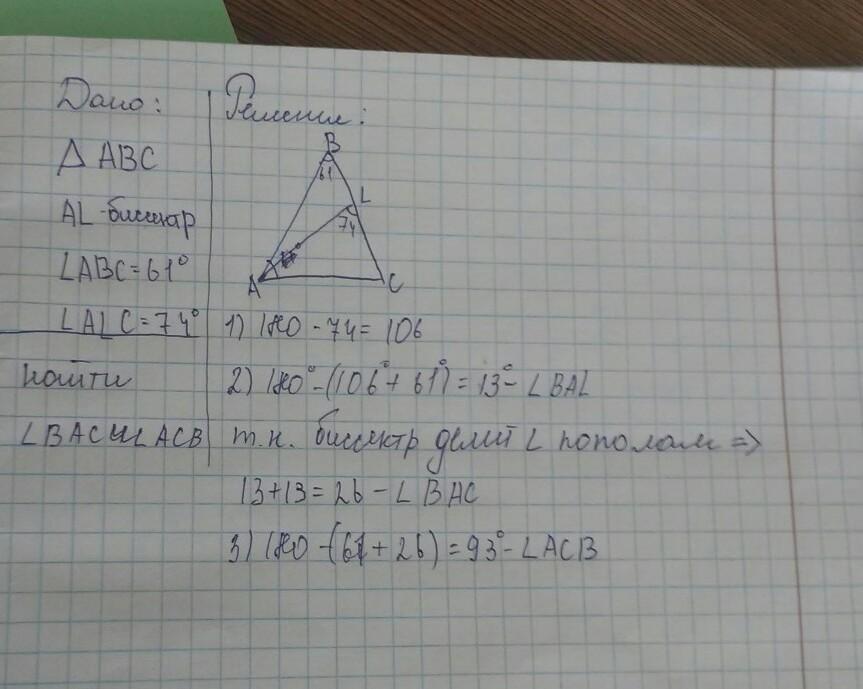 Дано:
Решение:
△ ABC
AL-биссектр
∠ABC=61°
∠ALC=74°
найти
∠BAC и ∠ACB
B
61
L
74
A
C
1) 180 - 74 = 106
2) 180° - (106° + 61°) = 13° - ∠BAL
т.к. биссектр делит ∠ пополам =>
13+13 = 26 - ∠BAC
3) 180 - (61 + 26) = 93° - ∠ACB